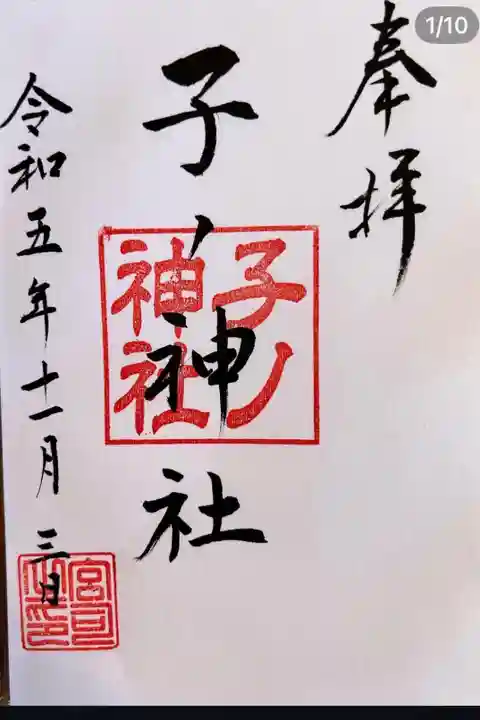 1/10
奉拝
子ノ神社
子ノ
神社
令和五年十一月三日
宮司
之印